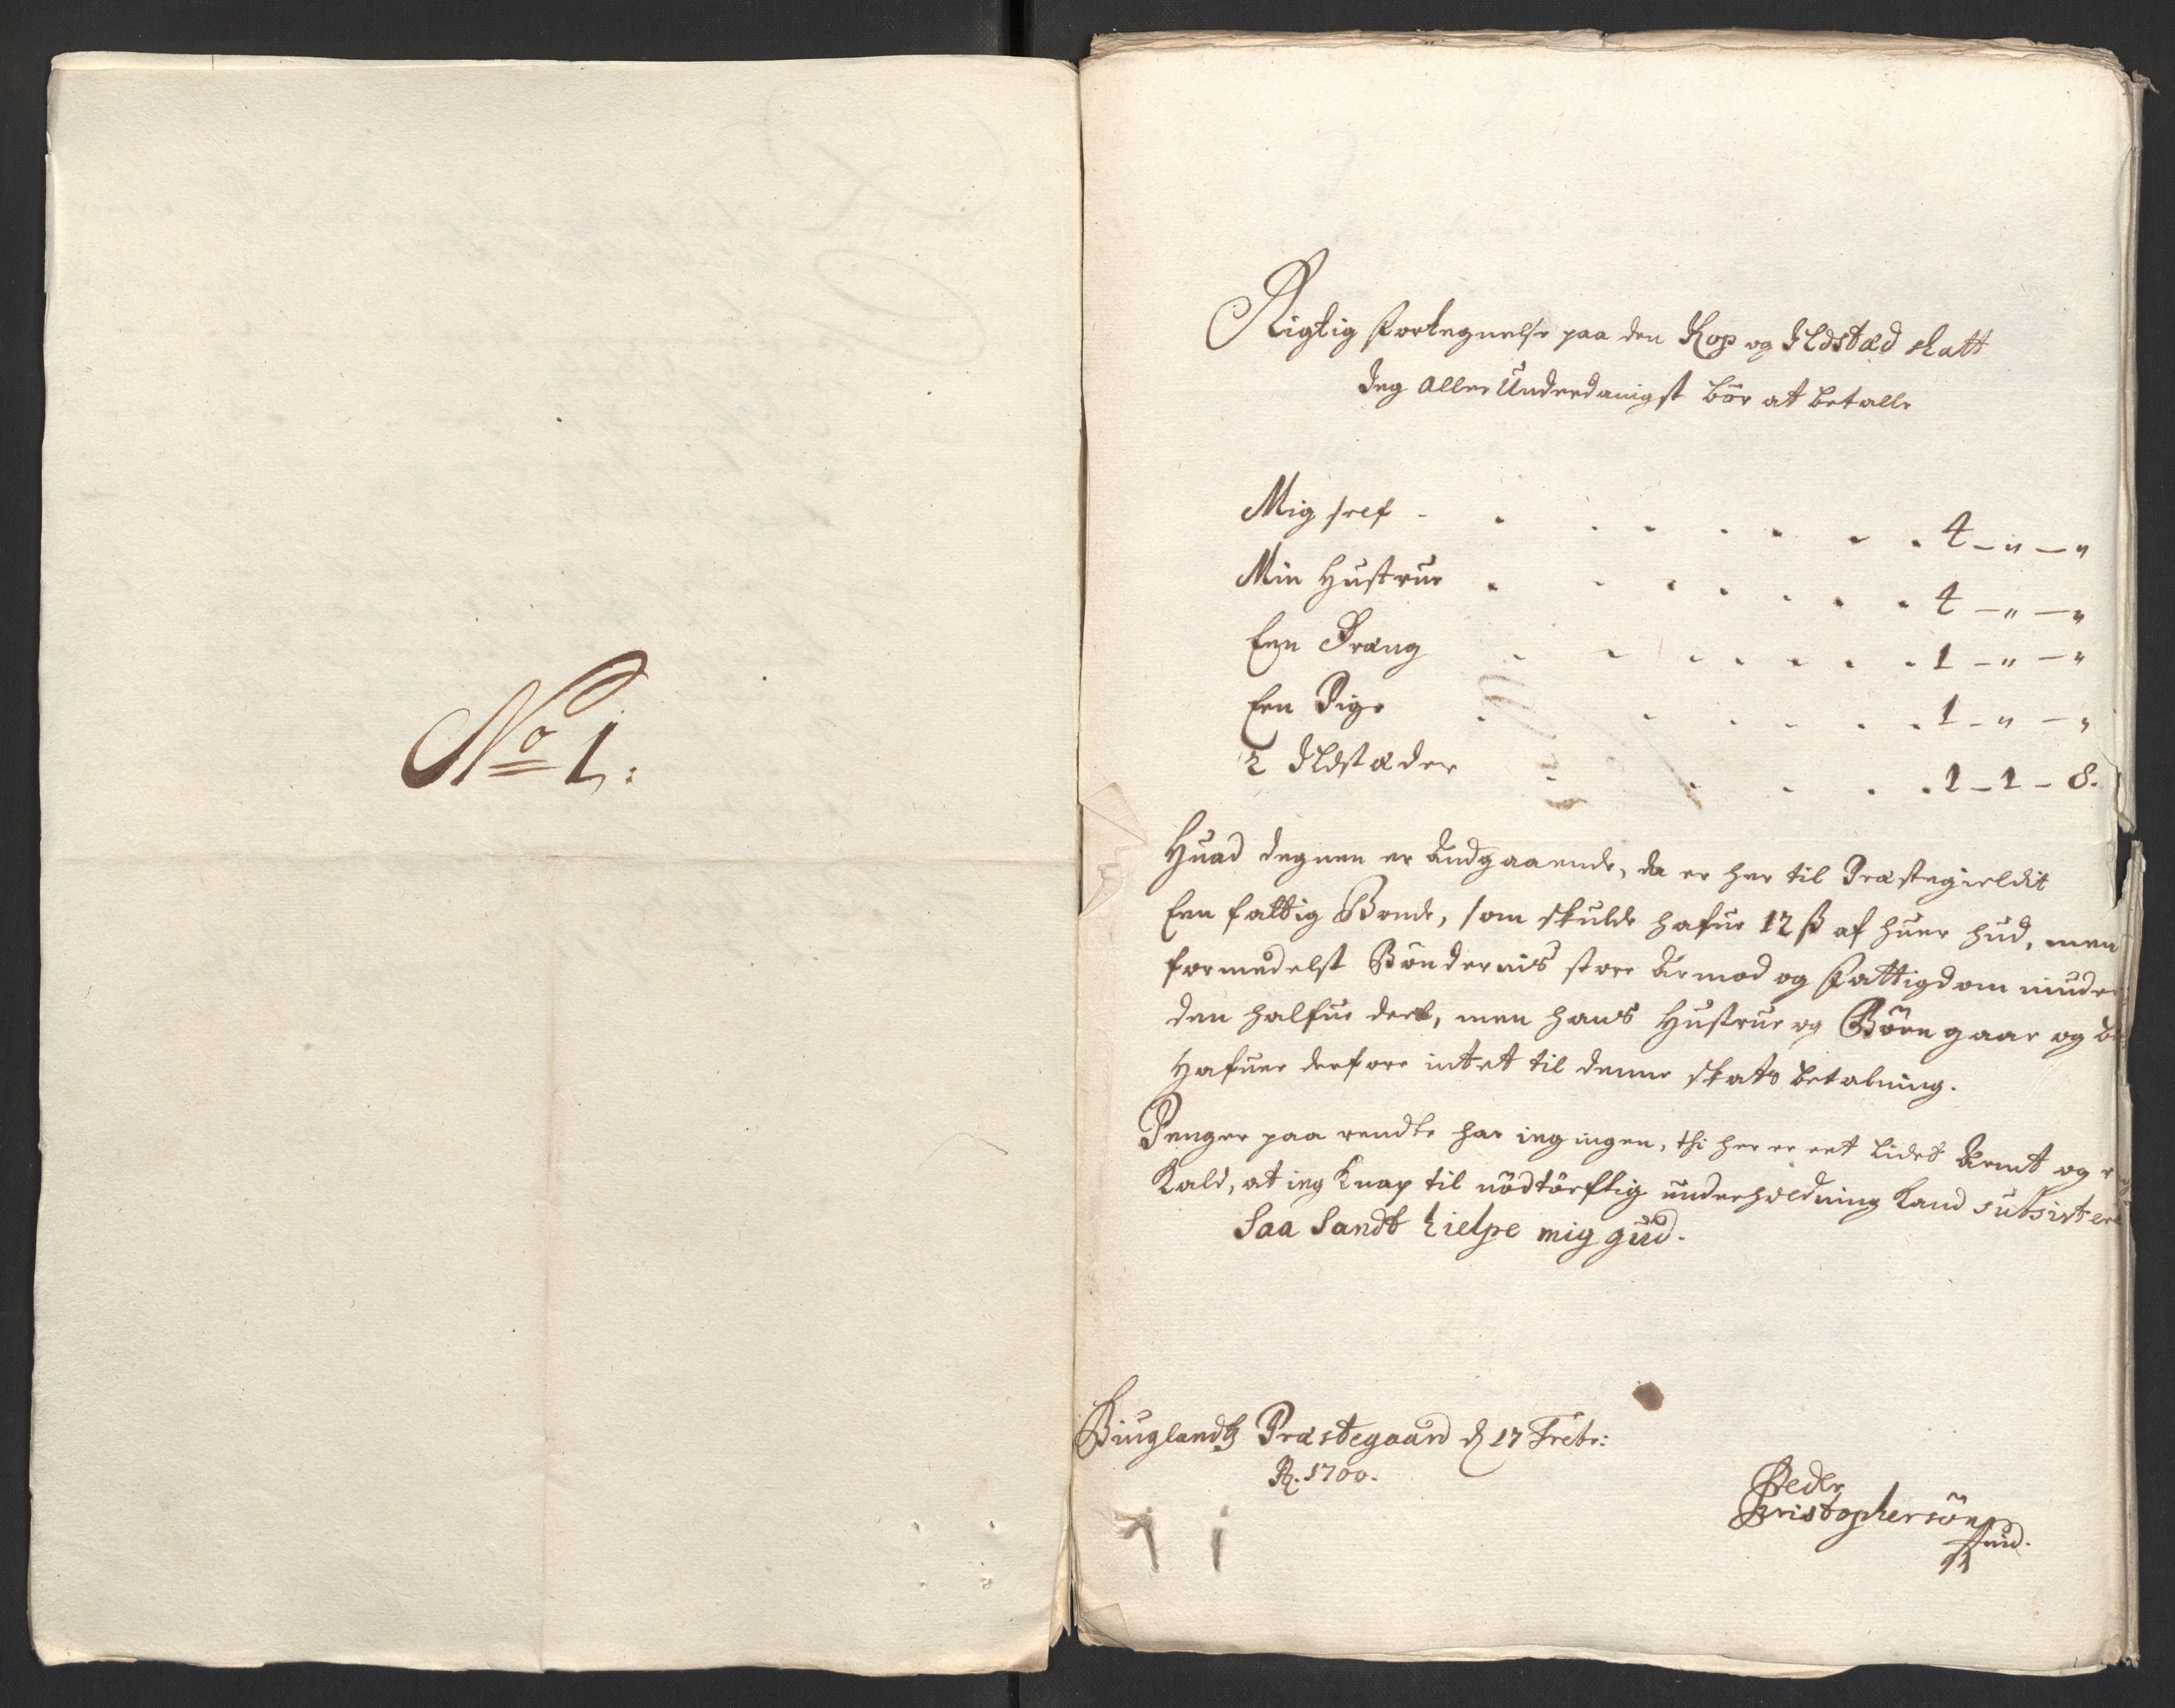 No 1:
Rigtig Fortegnelse paa den Kop og Ildstæd skatt
Jeg aller Underdanigst bör at betalle
Mig self - . . . . . . . 4 - " - "
Min Hustrue . . . . . . . 4 - " - "
Een Dræng . . . . . . . 1 - " - "
Een Pige . . . . . . 1 - " - "
2 Ildstæder . . . . . 1 - 1 - 8.
Huad degnen er andgaaende, da er her til Præstegieldit
Een fattig Bonde, som skulde hafue 12 ß af huer hud, men
formedelst Böndernis store Armod og Fattigdom minder
den halfue deel, men hans Hustrue og Börn gaar og
Hafuer derfore intet til denne skats betalning.
Penger paa rendte har ieg ingen, thi her er eet lidet Armt og
Kald, at ieg knap til nödtörftig underholdning kand subsistere
Saa Sandt hielpe mig gud.
Biuglandtz Præstegaard d 17 Febr:
Ao. 1700.
Peder
Christophersön